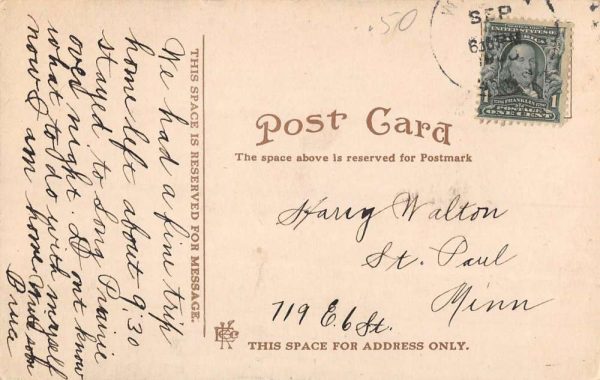 We had a fine trip
home left about 9:30
stayed to Long Prairie
over night. Dont know
what to do with myself
now I am home.
THIS SPACE IS RESERVED FOR MESSAGE.
.50
SEP
6
UNITED STATES OF
AMERICA
FRANKLIN
1
POSTAGE
ONE CENT
Post Card
The space above is reserved for Postmark
Harry Walton
St. Paul
Minn
719 E. 6 St.
THIS SPACE FOR ADDRESS ONLY.